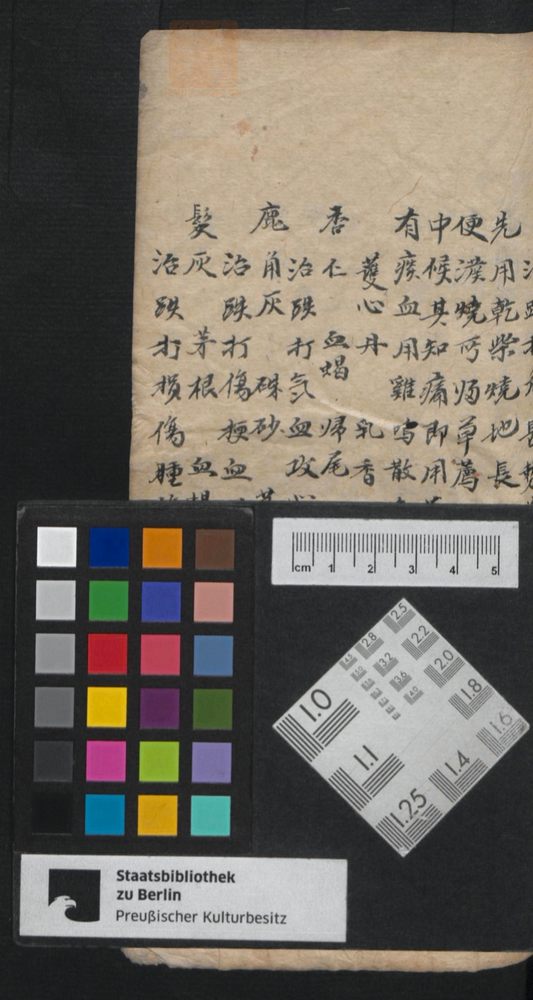 先用乾柴燒地長
便燒草薦
中候其知痛即用
有瘀血用雞鳴散
護心丹 乳香
杏仁 血蝎 歸尾
治跌打氣血攻
鹿角灰 硃砂
治跌打傷梗血
髮灰 茅根 血
治跌打損傷腫
cm 1 2 3 4 5
2.5
2.8 2.2
4.5 3.2 2.0
3.6 1.8
4.0 1.6
1.0 1.4
1.1 1.25
Staatsbibliothek
zu Berlin
Preußischer Kulturbesitz